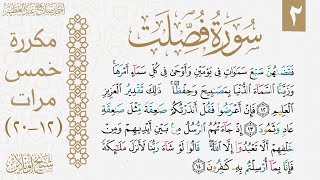 ٢
سورة فصلت
مكررة
خمس
مرات
(١٢-٢٠)
فَقَضَىٰهُنَّ سَبْعَ سَمَٰوَاتٍ فِى يَوْمَيْنِ وَأَوْحَىٰ فِى كُلِّ سَمَآءٍ أَمْرَهَا
وَزَيَّنَّا ٱلسَّمَآءَ ٱلدُّنْيَا بِمَصَٰبِيحَ وَحِفْظًا ذَٰلِكَ تَقْدِيرُ ٱلْعَزِيزِ
ٱلْعَلِيمِ ١٢ فَإِنْ أَعْرَضُوا۟ فَقُلْ أَنذَرْتُكُمْ صَٰعِقَةً مِّثْلَ صَٰعِقَةِ
عَادٍ وَثَمُودَ ١٣ إِذْ جَآءَتْهُمُ ٱلرُّسُلُ مِنۢ بَيْنِ أَيْدِيهِمْ وَمِنْ
خَلْفِهِمْ أَلَّا تَعْبُدُوٓا۟ إِلَّا ٱللَّهَ قَالُوا۟ لَوْ شَآءَ رَبُّنَا لَأَنزَلَ مَلَٰٓئِكَةً
فَإِنَّا بِمَآ أُرْسِلْتُم بِهِۦ كَٰفِرُونَ ١٤